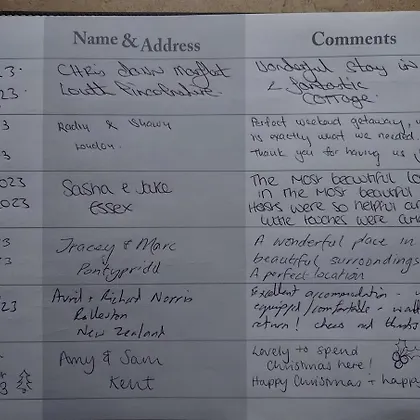 Name & Address Comments
23. Chris Dawn Moffat Wonderful stay in
23. Louth Lincolnshire. a fantastic
Cottage.
3 & Shawn Perfect weekend getaway,
London. is exactly what we needed.
3 Thank you for having us
023 Sasha & Jake The most beautiful
2023 Essex in the most beautiful
Hosts were so helpful
little touches were
3 Tracey & Marc A wonderful place in
3 Pontypridd beautiful surroundings
A perfect location
023 Avril & Richard Norris Excellent accommodation -
Rolleston equipped/comfortable -
New Zealand return! cheers and thanks
Amy & Sam Lovely to spend
3 Kent Christmas here!
Happy Christmas + happy